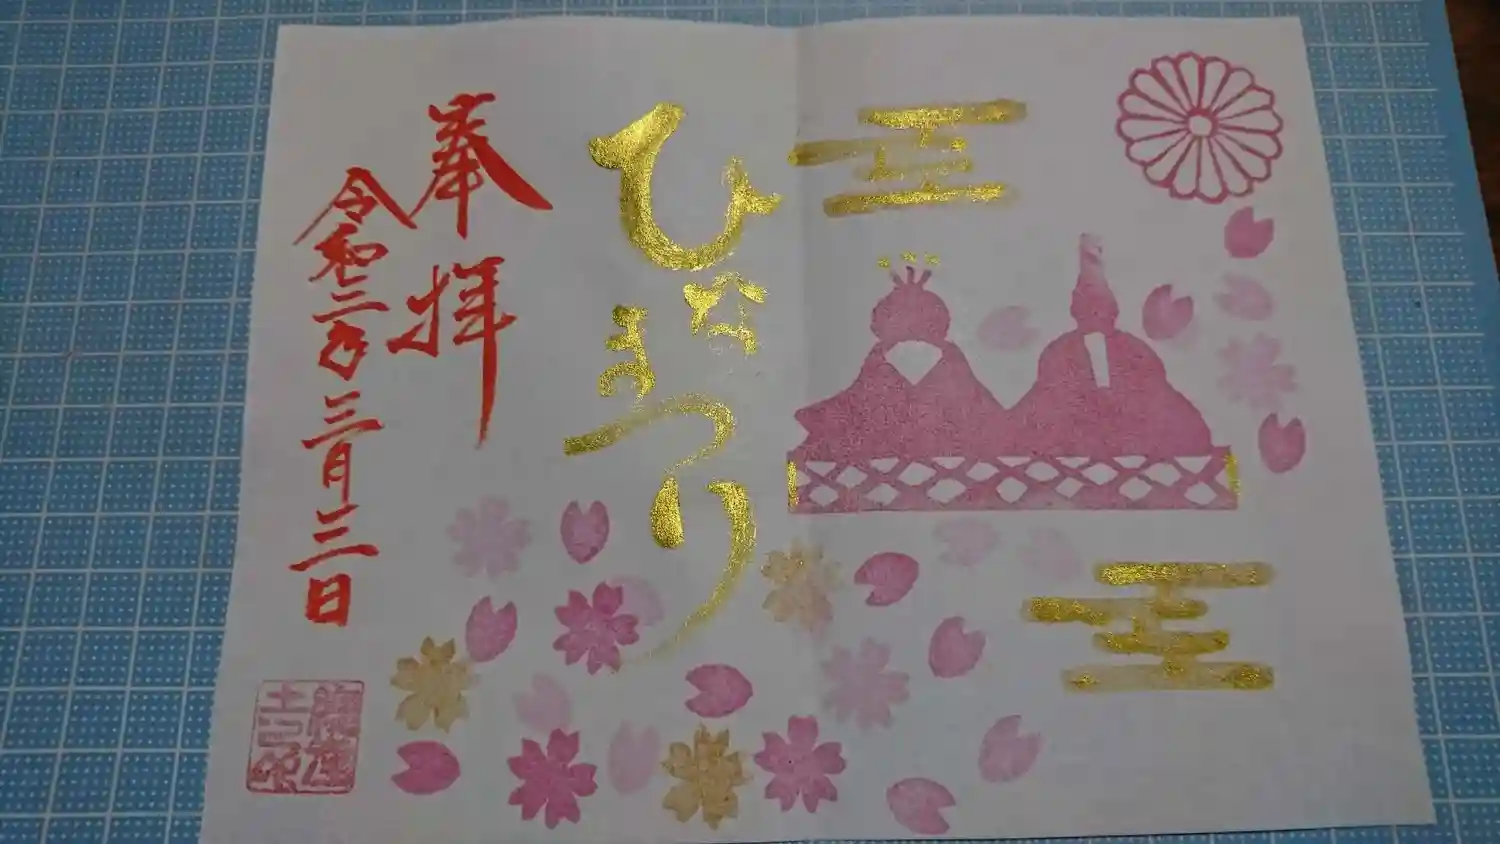 ひなまつり
奉拝
令和三年三月三日